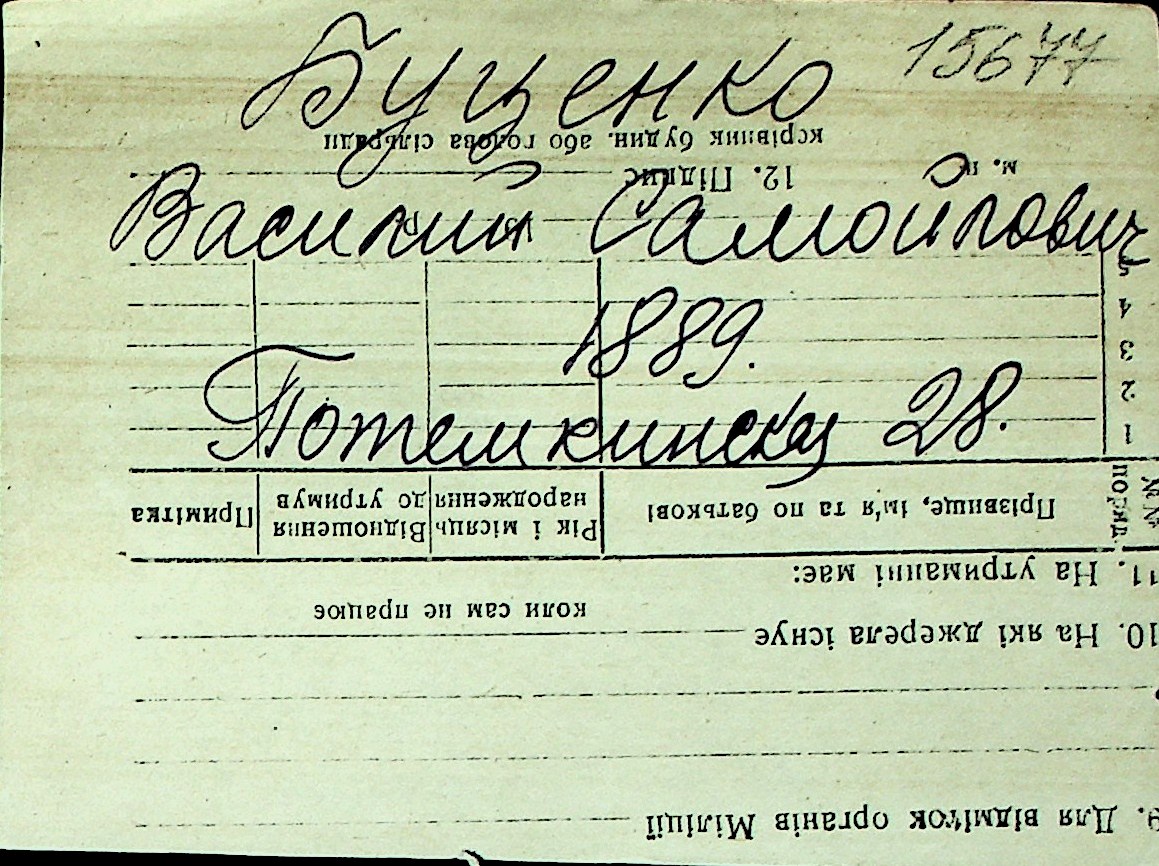 15677
Буценко
Василий Самойлович
1889.
Потемкинск 28.
9. Для відміток органів Міліції
10. На які джерела існує
коли сам не працює
11. На утриманні має:
№№ поряд. Прізвище, ім'я та по батькові Рік і місяць народження Відношення до утримув Примітка
1
2
3
4
5
12. Підпис
м. п.
керівник будин. або голова сільради